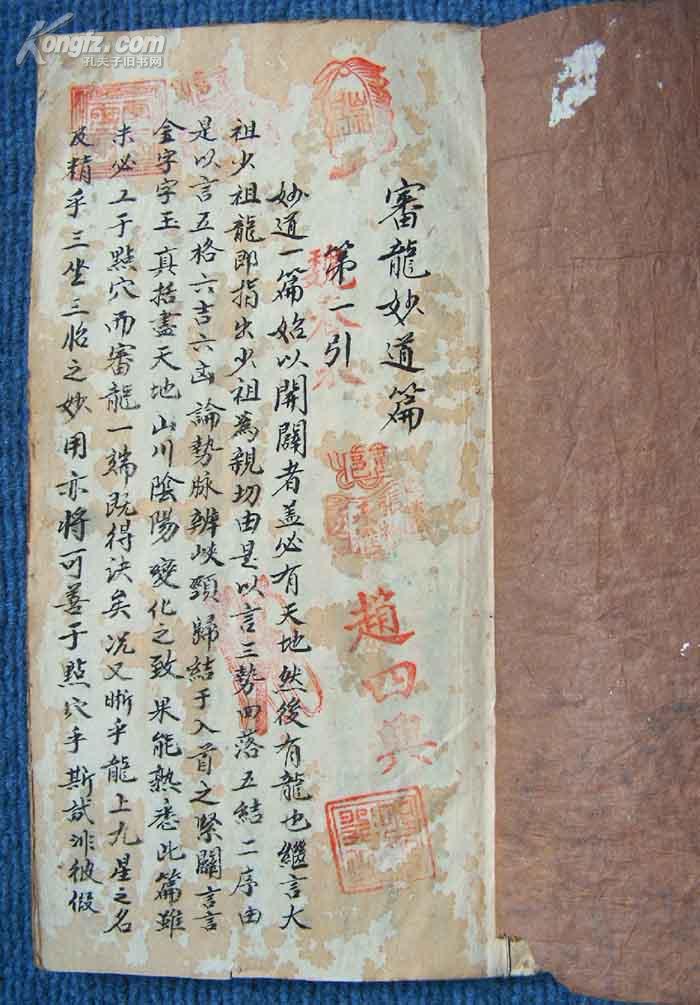 Kongfz.com
孔夫子旧书网
審龍妙道篇
第一引
妙道一篇始以開闢者盖必有天地然後有龍也繼言大
祖少祖龍即指出少祖爲親切由是以言三勢四落五結二序由
是以言五格六吉六凶論勢脉辨峽頸歸結于入首之緊關言言
金字字玉真括盡天地山川陰陽變化之致果能熟悉此篇雖
未必工于點穴而審龍一端既得訣矣况又晰乎龍上九星之名
及精乎三坐三性之妙用亦將可善于點穴乎斯誠非彼假
趙四興